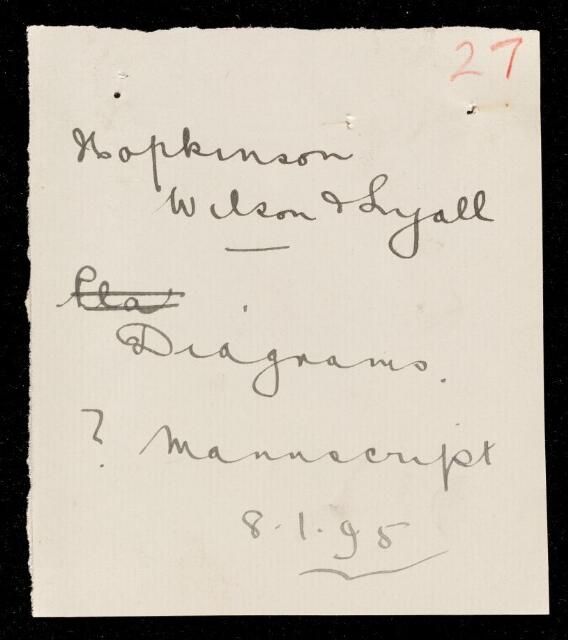 27
Hopkinson
Wilson & Lyall
Diagrams.
? Manuscript
8.1.95